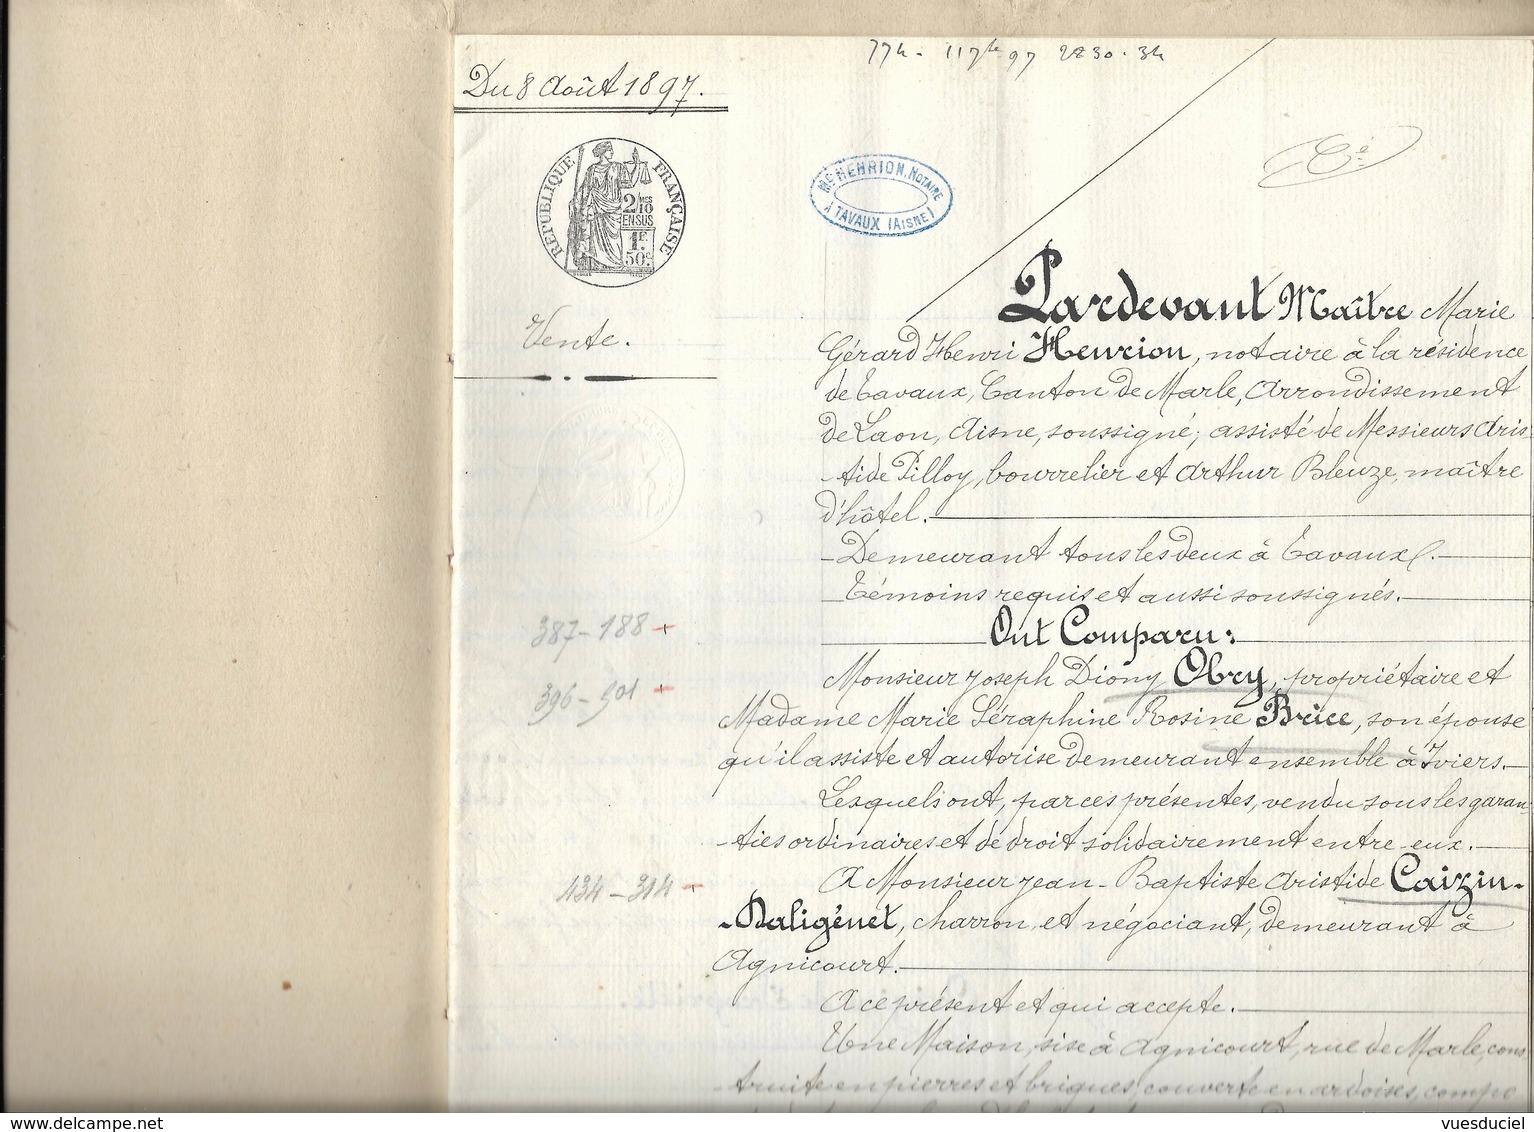 Du 8 Août 1897.
RÉPUBLIQUE FRANÇAISE
2/10 MES
EN SUS
1F.
50c.
Vente.
387-188 +
396-501 +
434-314 -
Me HENRION, NOTAIRE
A TAVAUX (AISNE)
Pardevant Maître Marie
Gérard Henri Henrion, notaire à la résidence
de Tavaux, Canton de Marle, Arrondissement
de Laon, Aisne, soussigné; assisté de Messieurs Aris-
-tide Pilloy, bourrelier et Arthur Bleuze, maître
d'hôtel.
Demeurant tous les deux à Tavaux.
Témoins requis et aussi soussignés.
Ont Comparu:
Monsieur Joseph Diony Obry, propriétaire et
Madame Marie Séraphine Rosine Brice, son épouse
qu'il assiste et autorise demeurant ensemble à Iviers.
Lesquels ont, par ces présentes, vendu sous les garan-
-ties ordinaires et de droit solidairement entre eux.
A Monsieur Jean-Baptiste Aristide Caizin-
-Daligénet, charron et négociant, demeurant à
Agnicourt.
A ce présent et qui accepte.
Une Maison, sise à Agnicourt, rue de Marle, cons
-truite en pierres et briques, couverte en ardoises, compo
www.delcampe.net
vuesduciel